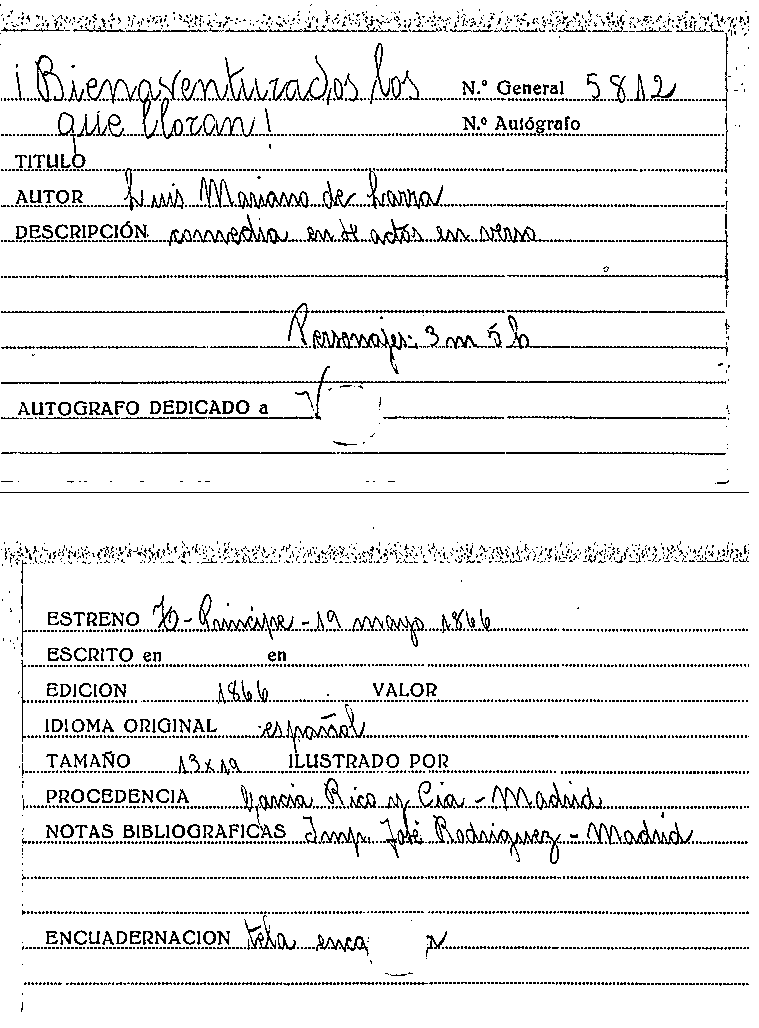 ¡Bienaventurados los Nº General 5812
que lloran! Nº Autógrafo
TITULO
AUTOR Luis Mariano de Larra
DESCRIPCIÓN comedia en actos en verso
Personajes: 3 m 5 h
AUTOGRAFO DEDICADO a
ESTRENO Príncipe - 19 mayo 1866
ESCRITO en en
EDICION 1866 VALOR
IDIOMA ORIGINAL español
TAMAÑO 13x19 ILUSTRADO POR
PROCEDENCIA García Rico y Cia - Madrid
NOTAS BIBLIOGRAFICAS Imp. José Rodriguez - Madrid
ENCUADERNACION tela